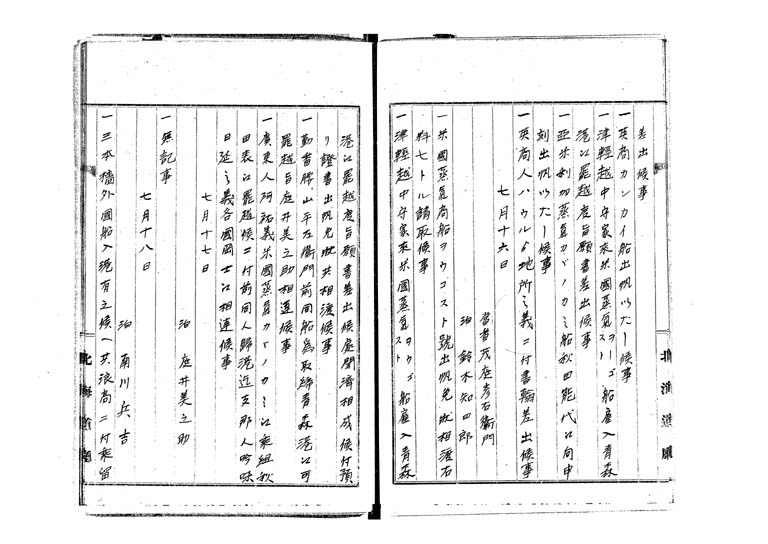 差出候事
一英商カンカイ船出帆いたし候事
一津軽越中守家来米國蒸氣ヲーゴスト船雇入青森
港江罷越度旨願書差出候事
一亜米利加蒸氣カヾノカミ船秋田能代江向申
刻出帆いたし候事
一英商人ハウルゟ地所之義ニ付書翰差出候事
七月十六日
當番茂庭彦右衞門
泊鈴木知四郎
一米國蒸氣商船ヲウゴスト號出帆免状相渡石
料七トル請取候事
一津軽越中守家来米國蒸氣ヲウゴスト船雇入青森
港江罷越度旨願書差出候處聞済相成候付預
リ證書出帆免状共相渡候事
一勤番勝山平左衞門前同船為取締青森港江可
罷越旨庭井美之助相達候事
一廣東人阿祐義米國蒸氣カヾノカミ江乗組秋
田表江罷越候ニ付前同人歸港迄支那人吟味
日延之義各國岡士江相達候事
七月十七日
泊庭井美之助
一無記事
七月十八日
泊南川兵吉
一三本檣外國船入港有之候へ共浪高ニ付乗留
北海道廳
北海道廳